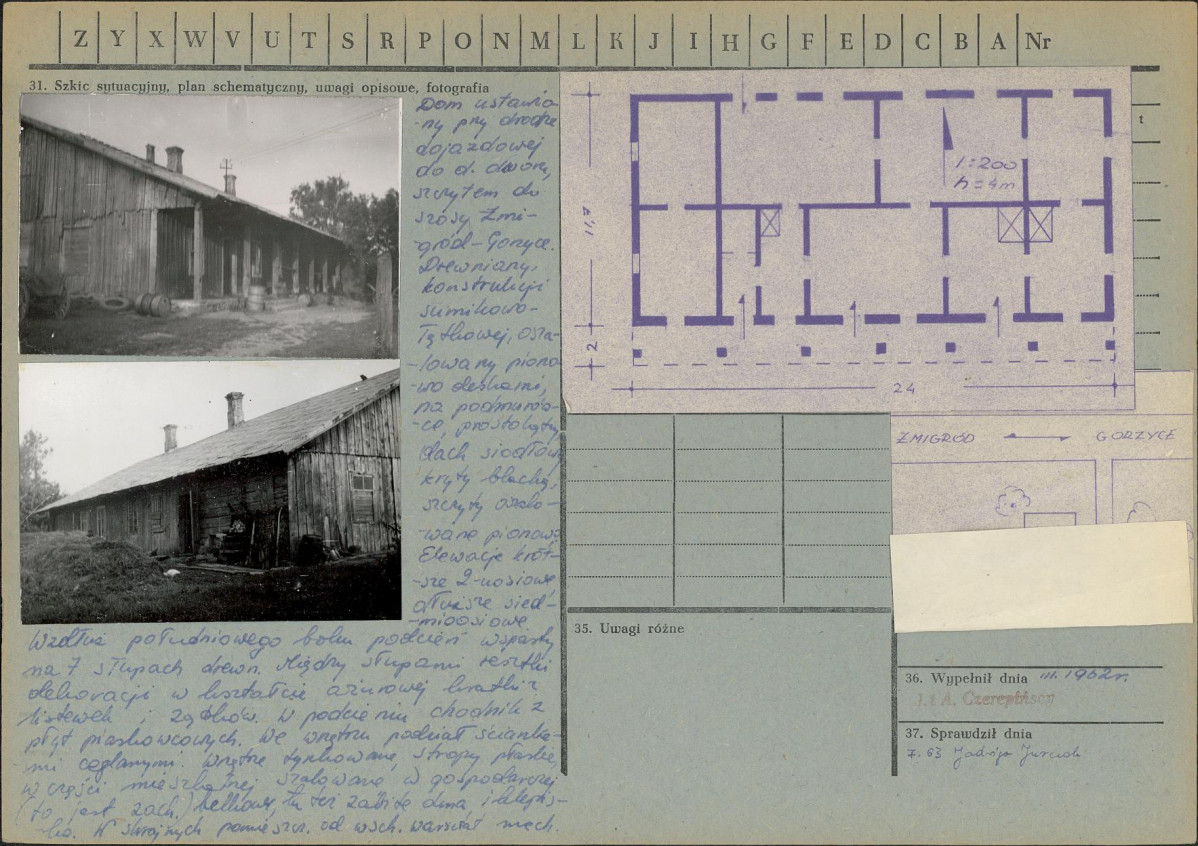 Z Y X W V U T S R P O N M L K J I H G F E D C B A Nr
31. Szkic sytuacyjny, plan schematyczny, uwagi opisowe, fotografia
Dom ustawio-
-ny przy drodze
dojazdowej
do d. dworu,
szczytem do
szosy Żmi-
gród-Gorzyce.
Drewniany,
konstrukcji
sumikowo-
łątkowej, osza-
-lowany piono-
wo deskami,
na podmurów-
-ce, prostokątny
dach siodłowy
kryty blachą,
szczyty oszalo-
wane pionowo
Elewacje krót-
-sze 2-osiowe,
dłuższe sied-
-mioosiowe.
Wzdłuż południowego boku podcień wsparty
na 7 słupach drewn. Między słupami resztki
dekoracji w kształcie ażurowej kratki z
listewek i ząbków. W podcieniu chodnik z
płyt piaskowcowych. We wnętrzu podział ścianka-
mi ceglanymi. Wnętrze tynkowane, stropy płaskie,
w części mieszkalnej szalowane, w gospodarczej
(to jest zach.) belkowe, tu też zabite okna
W skrajnych pomieszcz. od wsch. warsztat mech.
1:200
h=4m
11,7
2
24
t
ŻMIGRÓD
GORZYCE
35. Uwagi różne
36. Wypełnił dnia III. 1962r.
A. Czerepińscy
37. Sprawdził dnia
7. 63 Jadwiga